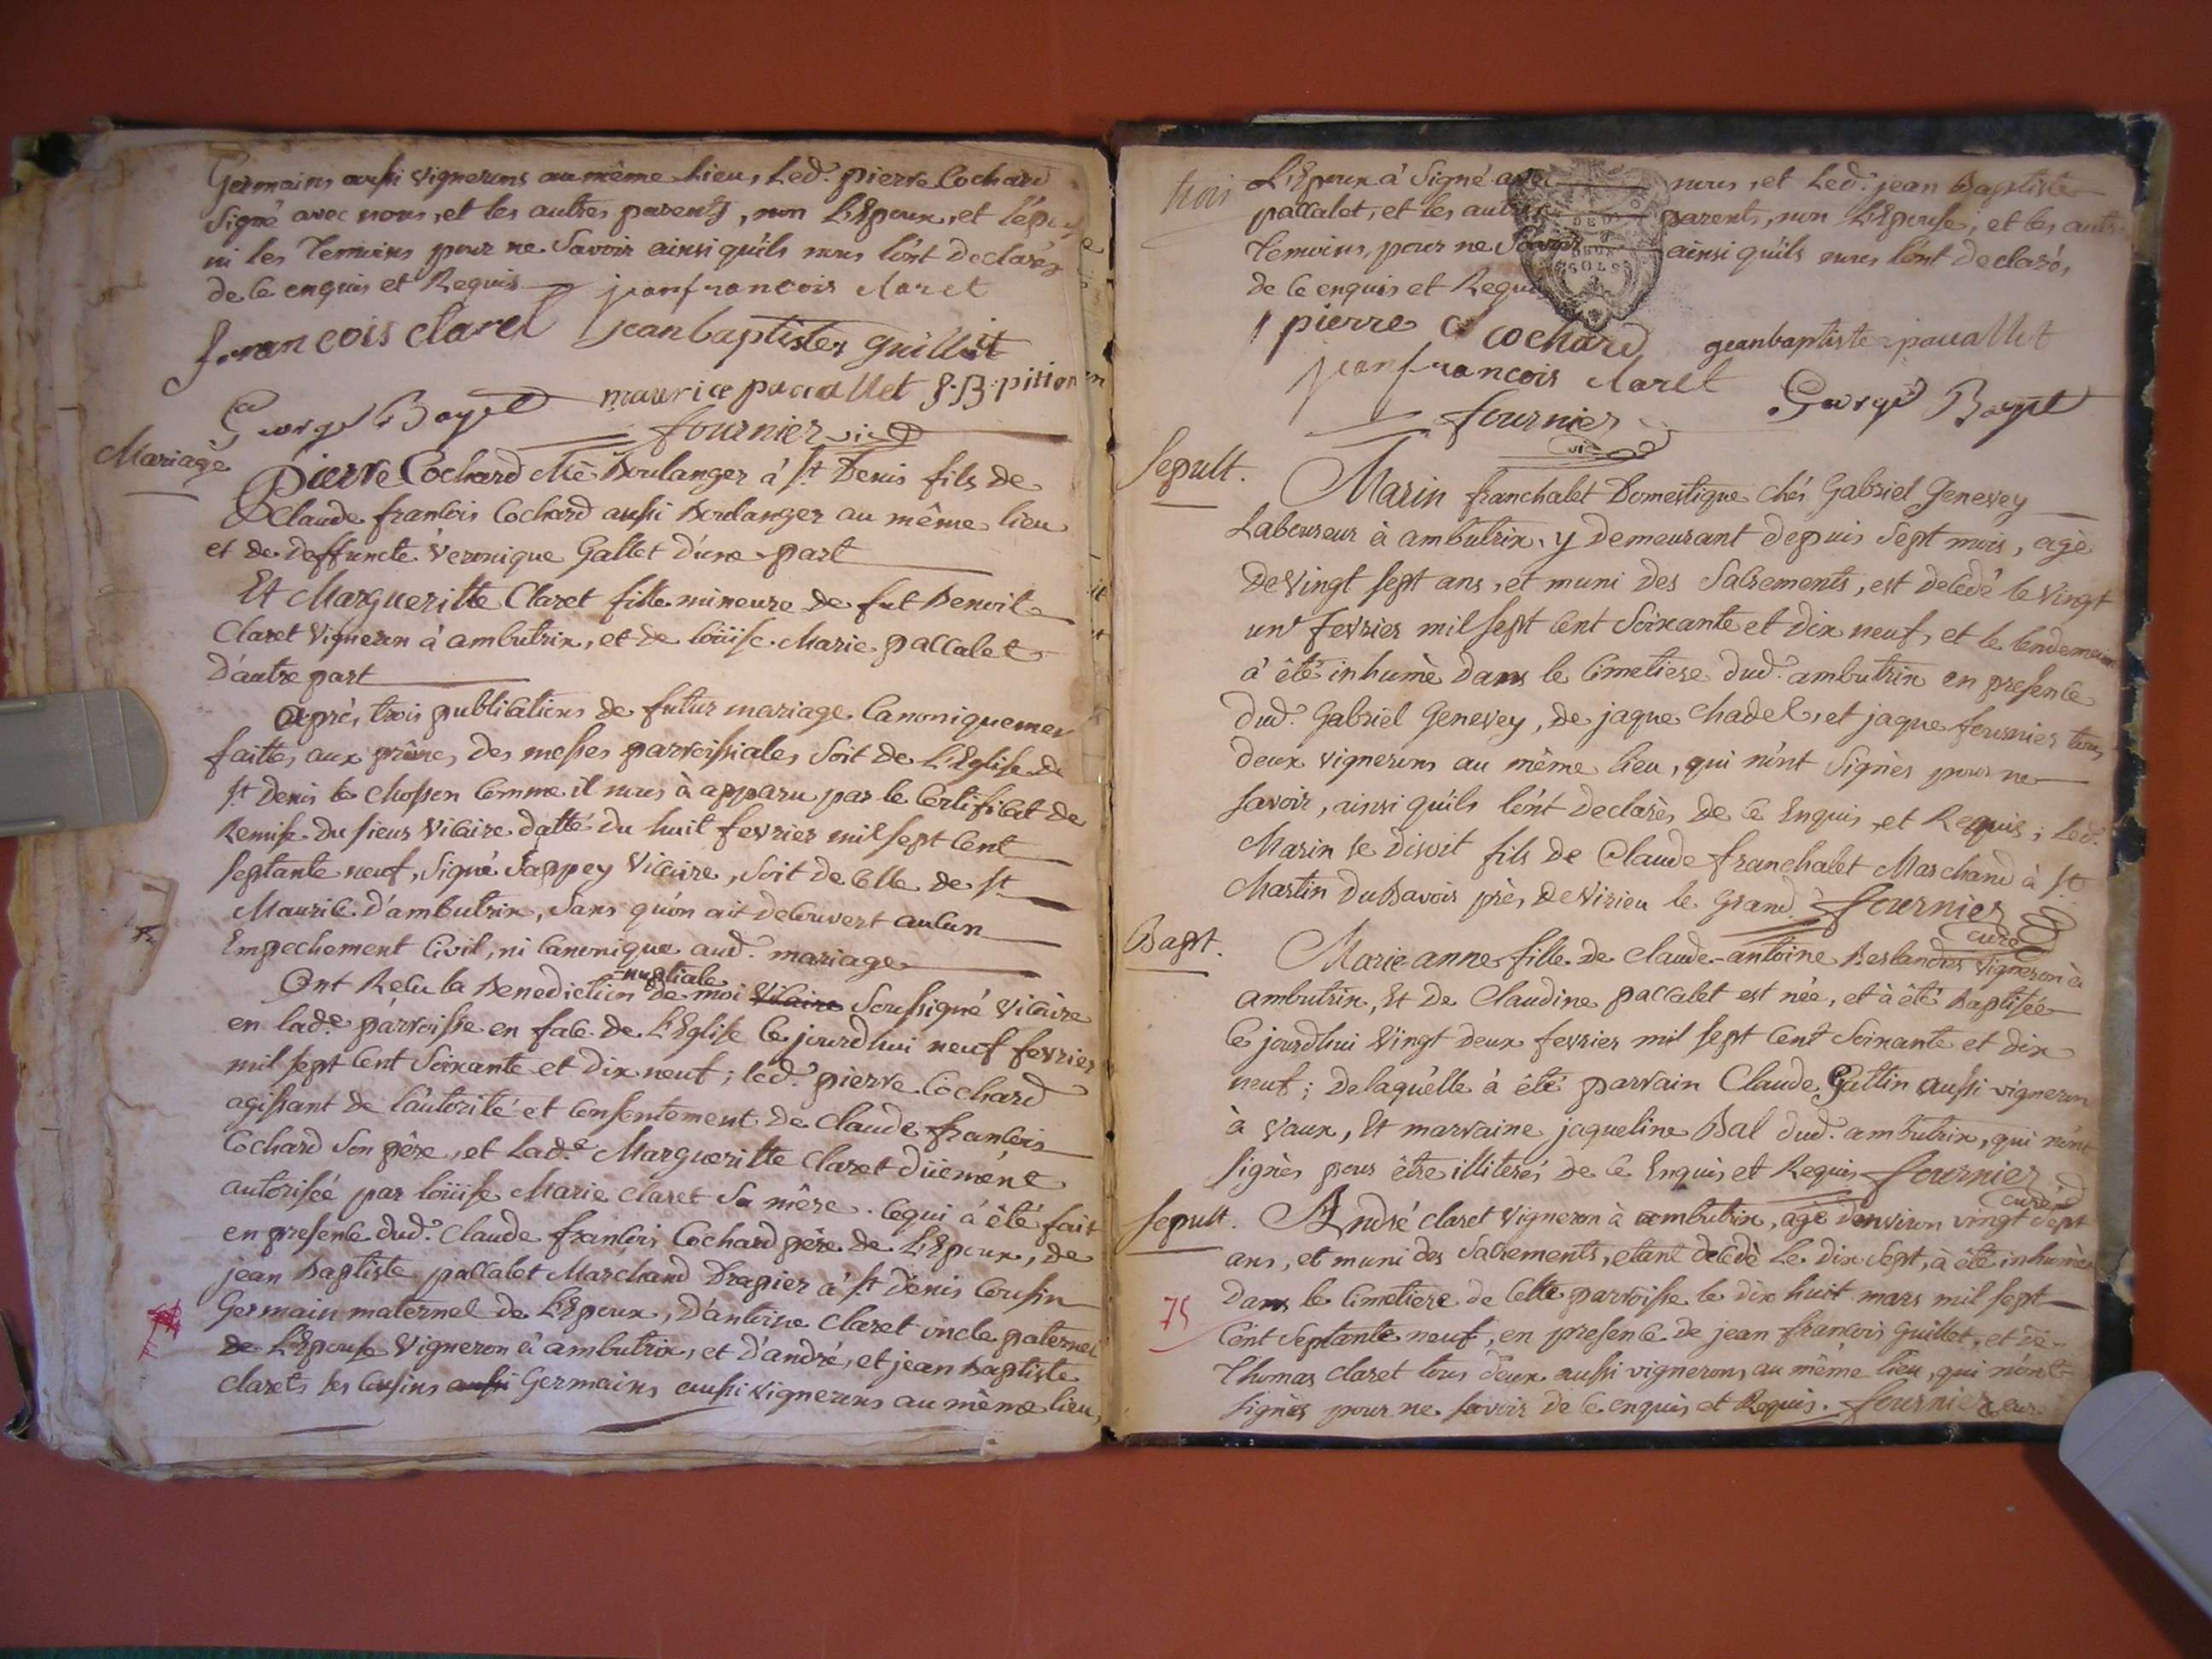 Germains aussi vignerons au même lieu, led. pierre Cochard
signé avec nous, et les autres parents, non L'Epoux, et l'épouse
ni les Temoins pour ne Savoir ainsi qu'ils nous l'ònt declarés
de ce enquis et Requis jeanfrancois claret
francois claret jeanbaptiste guillot
George Bayet maurice paccallet J. B. pition
fournier vic
Mariage
Pierre Cochard Me Boulanger à st. Denis fils de
Claude francois Cochard aussi Boulanger au même lieu
et de deffuncte Veronique Gallet d'une part
Et Margueritte Claret fille mineure de fut Benoit
Claret Vigneron à ambutrix, et de loüise Marie paccalet
D'autre part
après trois publications de futur mariage Canoniquement
faittes aux prônes des messes parroissiales Soit de L'Eglise de
st. Denis le Chosson Comme il nous à apparu par le Certificat de
Remise du sieur Vicaire datté du huit fevrier mil sept Cent
septante neuf, Signé Sappey Vicaire, Soit de Celle de st.
Maurice d'ambutrix, Sans qu'on ait decouvert aucun
Empechement Civil, ni Canonique aud. mariage
Ont Recu la Benediction nuptiale de moi Vicaire Soussigné Vicaire
en lade. parroisse en face de L'Eglise Ce jourdhui neuf fevrier
mil sept Cent Soixante et Dix neuf; led. pierre Cochard
agissant de l'autorité et Consentement de Claude francois
Cochard Son père, et Lade. Margueritte Claret düement
autorisée par loüise Marie Claret Sa mère. Cequi à été fait
en presence dud. Claude francois Cochard père de L'Epoux, de
jean Baptiste paccalet Marchand Drapier à st. Denis Cousin
Germain maternel de L'Epoux, D'antoine Claret oncle paternel
de L'Epouse Vigneron à ambutrix, et d'andré, et jean Baptiste
clarets ses Cousins aussi Germains aussi Vignerons au même lieu,
trois
L'Epoux à Signé avec nous, et Led. jean Baptiste
paccalet, et les autres parents, non L'Epouse, et les autres
Temoins, pour ne Savoir ainsi qu'ils nous l'ònt declarés
de Ce enquis et Requis
pierre cochard geanbaptiste paccallet
jeanfrancois claret George Bayet
fournier
vic
Sepult.
Marin franchalet Domestique chés Gabriel Genevey
Laboureur à ambutrix, y demeurant depuis Sept mois, agé
De Vingt sept ans, et muni des Sacrements, est decedé le Vingt
un fevrier mil sept Cent Soixante et Dix neuf, et le lendemain
à êté inhumè dans le Cimetiere dud. ambutrix en presence
dud. Gabriel Genevey, de jaque Chadel, et jaque fournier tous
deux vignerons au même lieu, qui n'ont Signès pour ne
savoir, ainsi qu'ils l'ònt declarès de Ce Enquis, et Requis; led.
Marin se disoit fils de Claude franchalet Marchand à St
Martin Du Bavois près de Virieu le Grand. fournier
curé
Bapt.
Marie anne fille de Claude-antoine Beslandres Vigneron à
ambutrix, Et de Claudine paccalet est née, et à êté Baptisée
Ce jourdhui Vingt deux fevrier mil sept Cent Soixante et dix
neuf; De laquelle à êté parrain Claude Gallin aussi vigneron
à Vaux, Et marraine jaqueline Bal dud. ambutrix, qui n'ont
signès pour être illiterés de Ce Enquis et Requis fournier
curé
Sepult.
André Claret Vigneron à ambutrix, agé d'environ vingt Sept
ans, et muni des Sacrements, etant decedé Le dix Sept, à êté inhumè
75
Dans le Cimetiere de Cette parroisse le dix huit mars mil sept
Cent Septante neuf, en presence de jean francois guillet, et de
Thomas claret tous deux aussi vignerons au même lieu, qui n'ont
signès pour ne savoir de Ce enquis et Requis. fournier curé